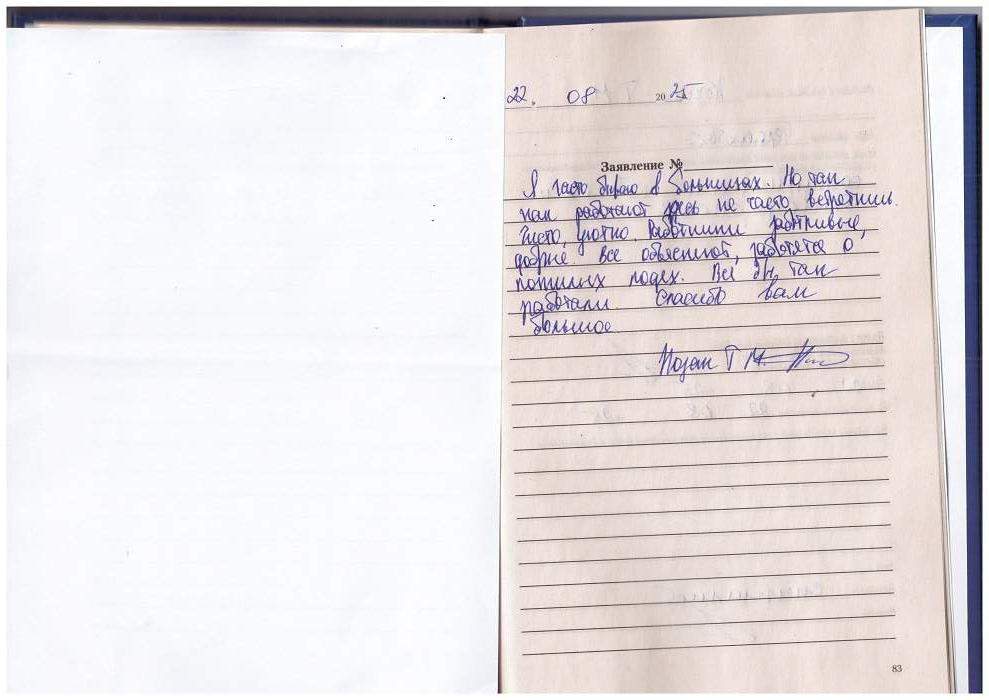 22. 08 2025
Заявление №
Я часто бываю в больницах. Но так
как работают здесь не часто встретишь.
Чисто, уютно. Работники заботливые,
добрые. Все объясняют, заботятся о
пожилых людях. Все бы так
работали Спасибо вам
большое
Козак Т М
83